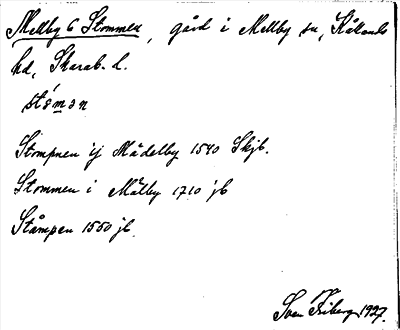 Mellby 6 Stommen, gård i Mellby sn, Kållands
hd, Skarab. l.
stómən
Stompnen ij Mädelby 1540 Skjb.
Stommen i Mälby 1710 jb
Ståmpen 1550 jb.
Sven Friberg 1927.